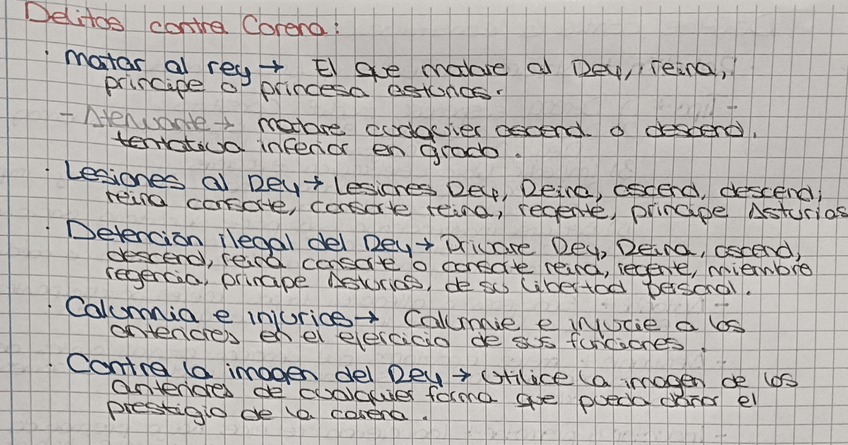 Delitos contra Corona:
· Matar al rey → El que matare al Rey, reina,
príncipe o princesa asturias.
- Atenuante → matare cualquier ascend o descend.
tentativa inferior en grado.
· Lesiones al Rey → Lesiones Rey, Reina, ascend, descend,
reina consorte, consorte reina, regente, príncipe Asturias
· Detención ilegal del Rey → Privare Rey, Reina, ascend,
descend, reina consorte o consorte reina, regente, miembro
regencia, príncipe Asturias, de su libertad personal.
· Calumnia e injurias → Calumnie e injurie a los
anteriores en el ejercicio de sus funciones.
· Contra la imagen del Rey → Utilice la imagen de los
anteriores de cualquier forma que pueda dañar el
prestigio de la corona.